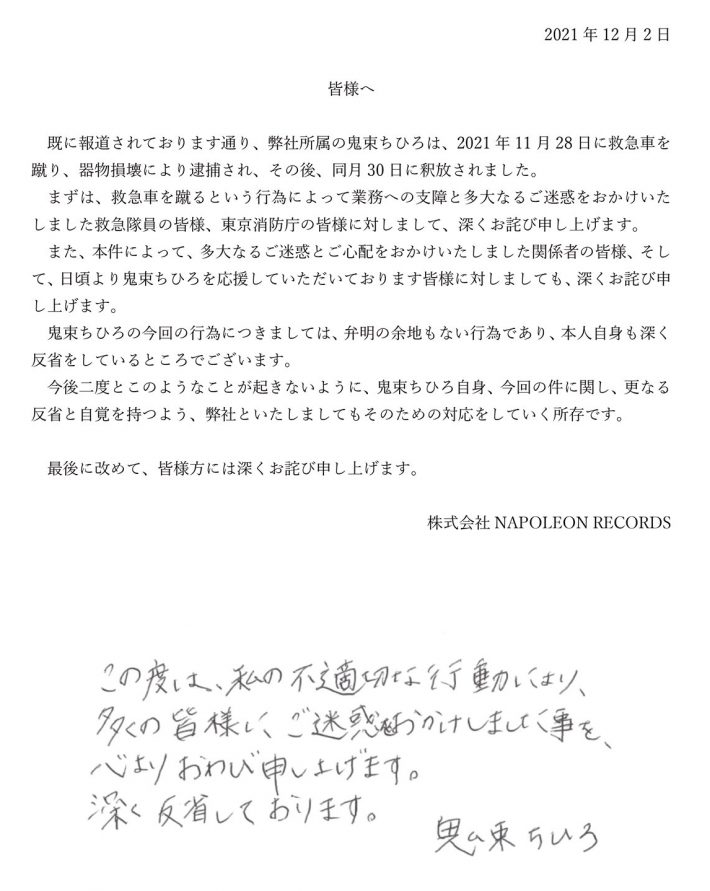 2021 年 12 月 2 日
皆様へ
既に報道されております通り、弊社所属の鬼束ちひろは、2021 年 11 月 28 日に救急車を
蹴り、器物損壊により逮捕され、その後、同月 30 日に釈放されました。
まずは、救急車を蹴るという行為によって業務への支障と多大なるご迷惑をおかけいた
しました救急隊員の皆様、東京消防庁の皆様に対しまして、深くお詫び申し上げます。
また、本件によって、多大なるご迷惑とご心配をおかけいたしました関係者の皆様、そし
て、日頃より鬼束ちひろを応援していただいております皆様に対しましても、深くお詫び申
し上げます。
鬼束ちひろの今回の行為につきましては、弁明の余地もない行為であり、本人自身も深く
反省をしているところでございます。
今後二度とこのようなことが起きないように、鬼束ちひろ自身、今回の件に関し、更なる
反省と自覚を持つよう、弊社といたしましてもそのための対応をしていく所存です。
最後に改めて、皆様方には深くお詫び申し上げます。
株式会社 NAPOLEON RECORDS
この度は、私の不適切な行動により、
多くの皆様に、ご迷惑をおかけしました事を、
心よりおわび申し上げます。
深く反省しております。
鬼束ちひろ